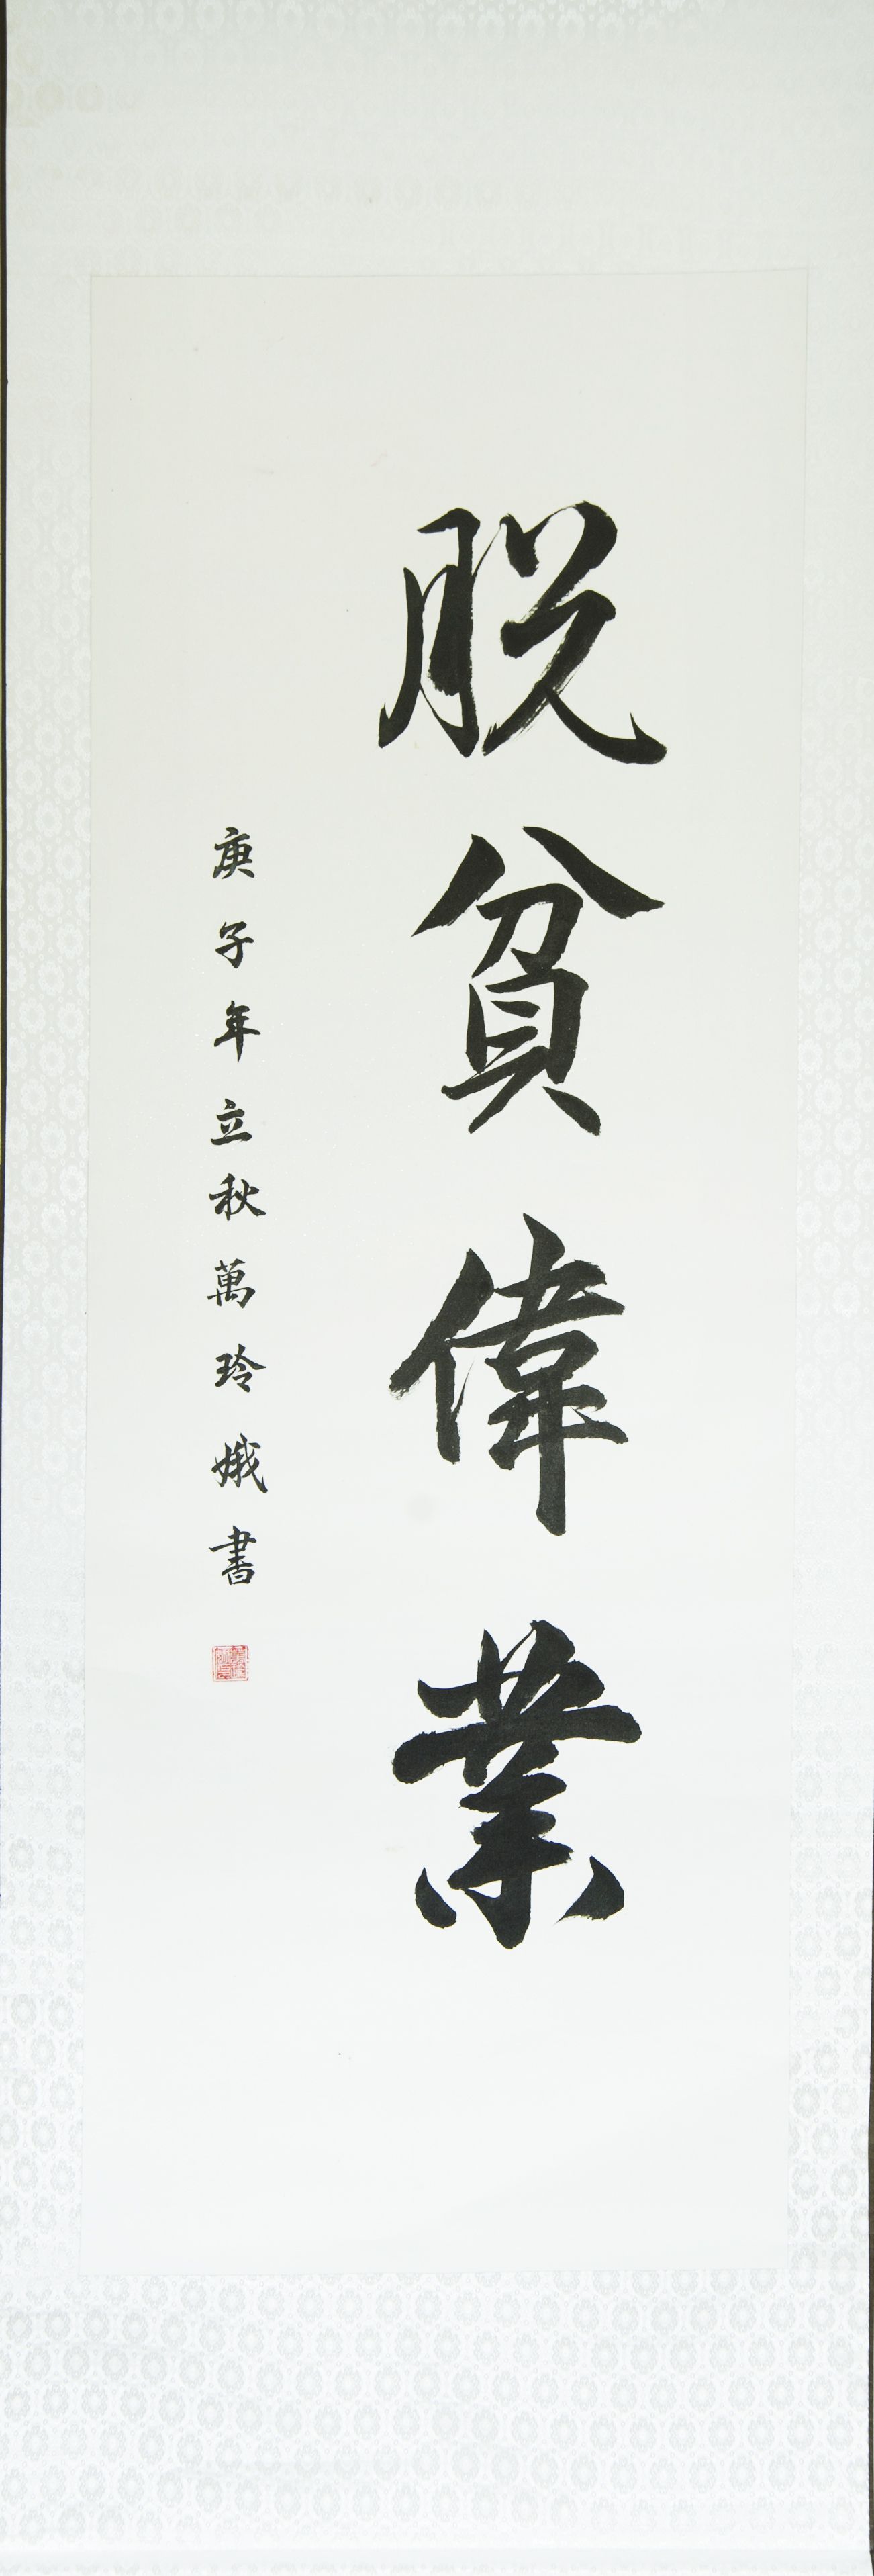 脱貧偉業
庚子年立秋萬玲娥書